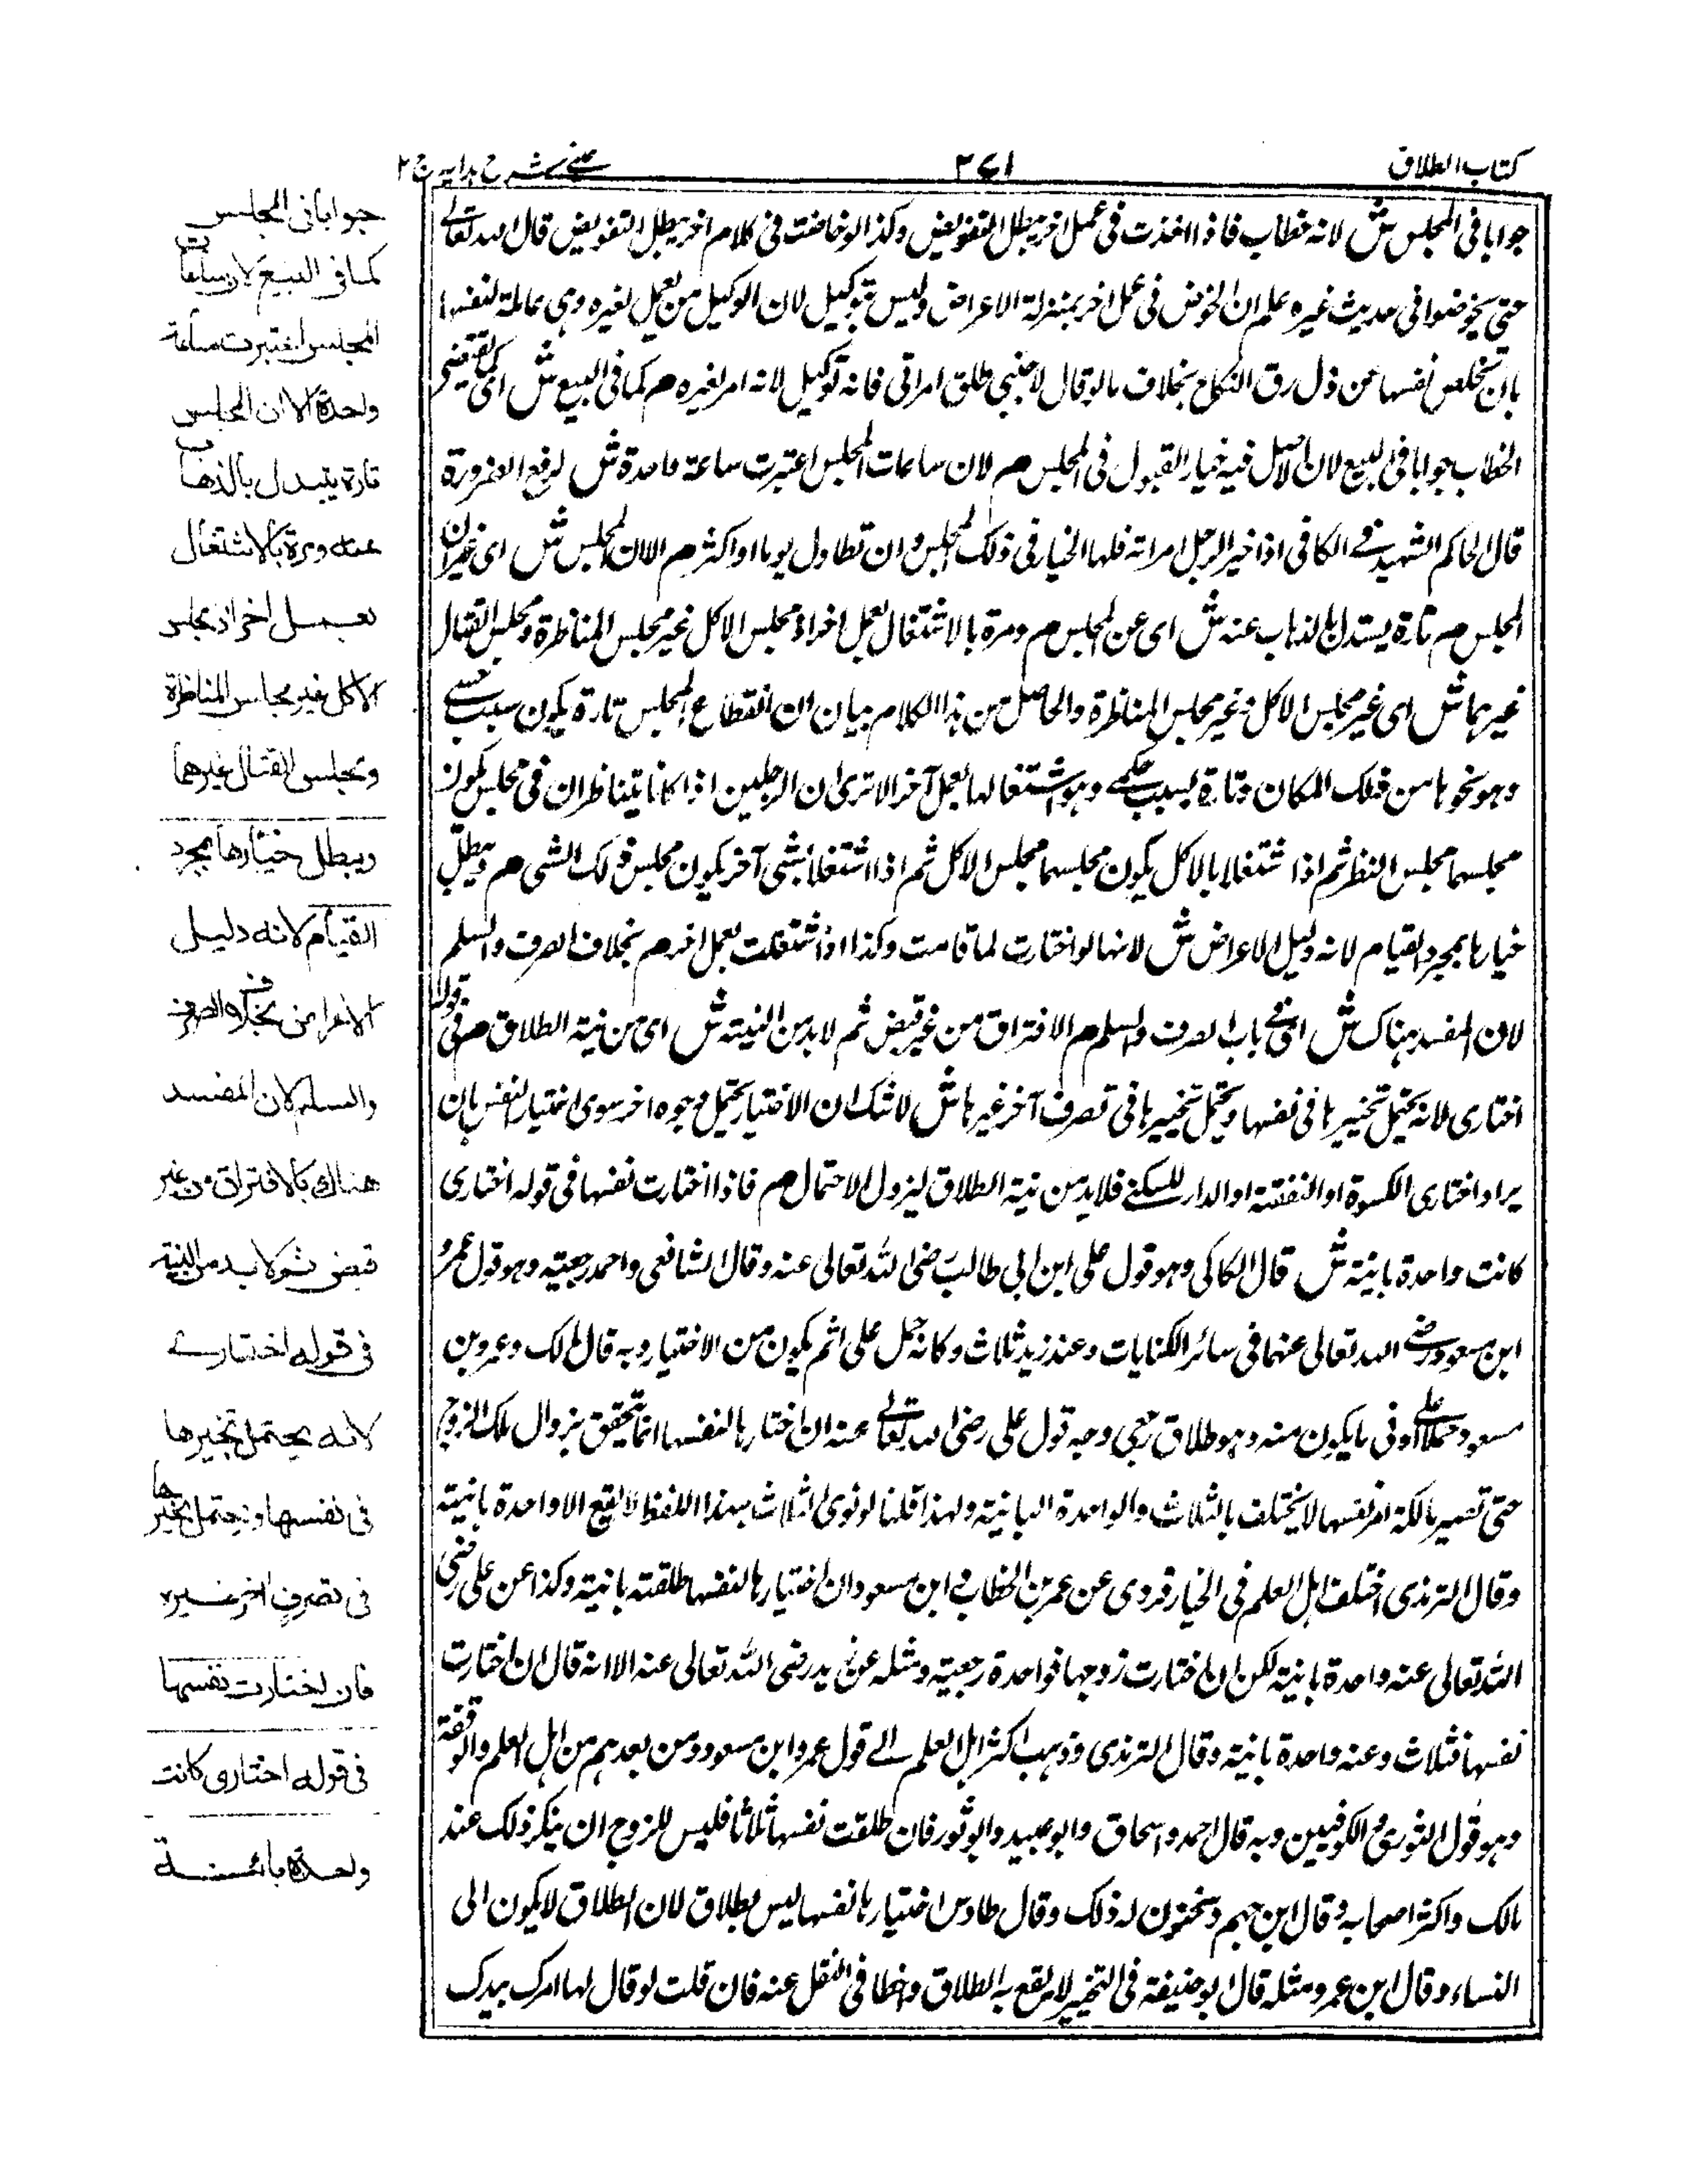 كتاب الطلاق
٣٧١
عينى شرح هدايه ج ٢
جوابا فى المجلس ش لانه خطاب فاذا اخذت فى عمل اخر يبطل التفويض وكذا لو خاضت فى كلام اخر يبطل التفويض قال الله تعالى
حتى يخوضوا فى حديث غيره علم ان الخوض فى عمل اخر بمنزلة الاعراض وليس بتوكيل لان الوكيل من يعمل لغيره وهى عاملة لنفسها
بان تخلص نفسها عن ذل رق النكاح بخلاف ما لو قال لاجنبى طلق امراتى فانه توكيل لانه امر لغيره م كما فى البيع ش اى كما يقتضى
الخطاب جوابا فى البيع لان الاصل فيه خيار القبول فى المجلس م لان ساعات المجلس اعتبرت ساعة واحدة ش لرفع الضرورة
قال الحاكم الشهيد فى الكافى اذا خير الرجل امراته فلها الخيار فى ذلك المجلس وان تطاول يوما او اكثر م الا ان المجلس ش اى غير ان
المجلس م تارة يستدل بالذهاب عنه ش اى عن المجلس م ومرة بالاشتغال بعمل اخر اذ مجلس الاكل غير مجلس المناظرة ومجلس القتال
غيرهما ش اى غير مجلس الاكل وغير مجلس المناظرة والحاصل من هذا الكلام بيان ان انقطاع المجلس تارة يكون بسبب حسى
وهو نحوها من ذلك المكان وتارة بسبب حكمى وهو اشتغالها بعمل آخر الا ترى ان الرجلين اذا كانا يتناظران فى مجلس يكون
مجلسهما مجلس النظر ثم اذا اشتغلا بالاكل يكون مجلسهما مجلس الاكل ثم اذا اشتغلا بشى آخر يكون مجلس ذلك الشى م ويبطل
خيارها بمجرد القيام لانه دليل الاعراض ش لانها لو اختارت لما قامت وكذا اذا اشتغلت بعمل اخر م بخلاف الصرف والسلم
لان المفسد هناك ش اى فى باب الصرف والسلم م الافتراق من غير قبض ثم لا بد من النية ش اى من نية الطلاق م فى قوله
اختارى لانه يحتمل تخييرها فى نفسها ويحتمل تخييرها فى تصرف آخر غيرها ش لا شك ان الاختيار يحتمل وجوه اخر سوى اختيار النفس بان
يراد اختارى الكسوة او النفقة او الدار للسكنى فلا بد من نية الطلاق ليزول الاحتمال م فاذا اختارت نفسها فى قوله اختارى
كانت واحدة بائنة ش قال الكاكى وهو قول على ابن ابى طالب رضى الله تعالى عنه وقال الشافعى واحمد رجعية وهو قول عمر و
ابن مسعود رضى الله تعالى عنهما فى سائر الكنايات وعند زيد ثلاث وكانه حمل على اتم يكون من الاختيار وبه قال مالك وعمر وبن
مسعود حملا على اوفى ما يكون منه وهو طلاق رجعى وجه قول على رضى الله تعالى عنه ان اختيارها لنفسها انما يتحقق بزوال ملك الزوج
حتى تصير مالكة امر نفسها لا يختلف بالثلاث والواحدة البائنة ولهذا قلنا لو نوى الثلاث بهذا اللفظ لا يقع الا واحدة بائنة
وقال الترمذى اختلف اهل العلم فى الخيار فروى عن عمر بن الخطاب وابن مسعود ان اختيارها لنفسها طلقته بائنة وكذا عن على رضى
الله تعالى عنه واحدة بائنة لكن ان اختارت زوجها فواحدة رجعية ومثله عن زيد رضى الله تعالى عنه الا انه قال ان اختارت
نفسها فثلاث وعنه واحدة بائنة وقال الترمذى وذهب اكثر اهل العلم الى قول عمر وابن مسعود ومن بعدهم من اهل العلم والفقه
وهو قول الثورى والكوفيين وبه قال احمد واسحاق وابو عبيد وابو ثور فان طلقت نفسها ثلاثا فليس للزوج ان ينكر ذلك عند
مالك واكثر اصحابه وقال ابن جهم وسحنون له ذلك وقال طاوس اختيارها نفسها ليس بطلاق لان الطلاق لا يكون الى
النساء وقال ابن عمر ومثله قال ابو حنيفة فى التخيير لا يقع به الطلاق واخطا فى النقل عنه فان قلت لو قال لها امرك بيدك
جوابا فى المجلس
كما فى البيع لان ساعات
المجلس اعتبرت ساعة
واحدة الا ان المجلس
تارة يتبدل بالذهاب
عنه ومرة بالاشتغال
بعمل اخر اذ مجلس
الاكل غير مجلس المناظرة
ومجلس القتال غيرهما
ويبطل خيارها بمجرد
القيام لانه دليل
الاعراض بخلاف الصرف
والسلم لان المفسد
هناك الافتراق من غير
قبض ثم لا بد من النية
فى قوله اختارى
لانه يحتمل تخييرها
فى نفسها ويحتمل تخييرها
فى تصرف اخر غيره
فان اختارت نفسها
فى قوله اختارى كانت
واحدة بائنة